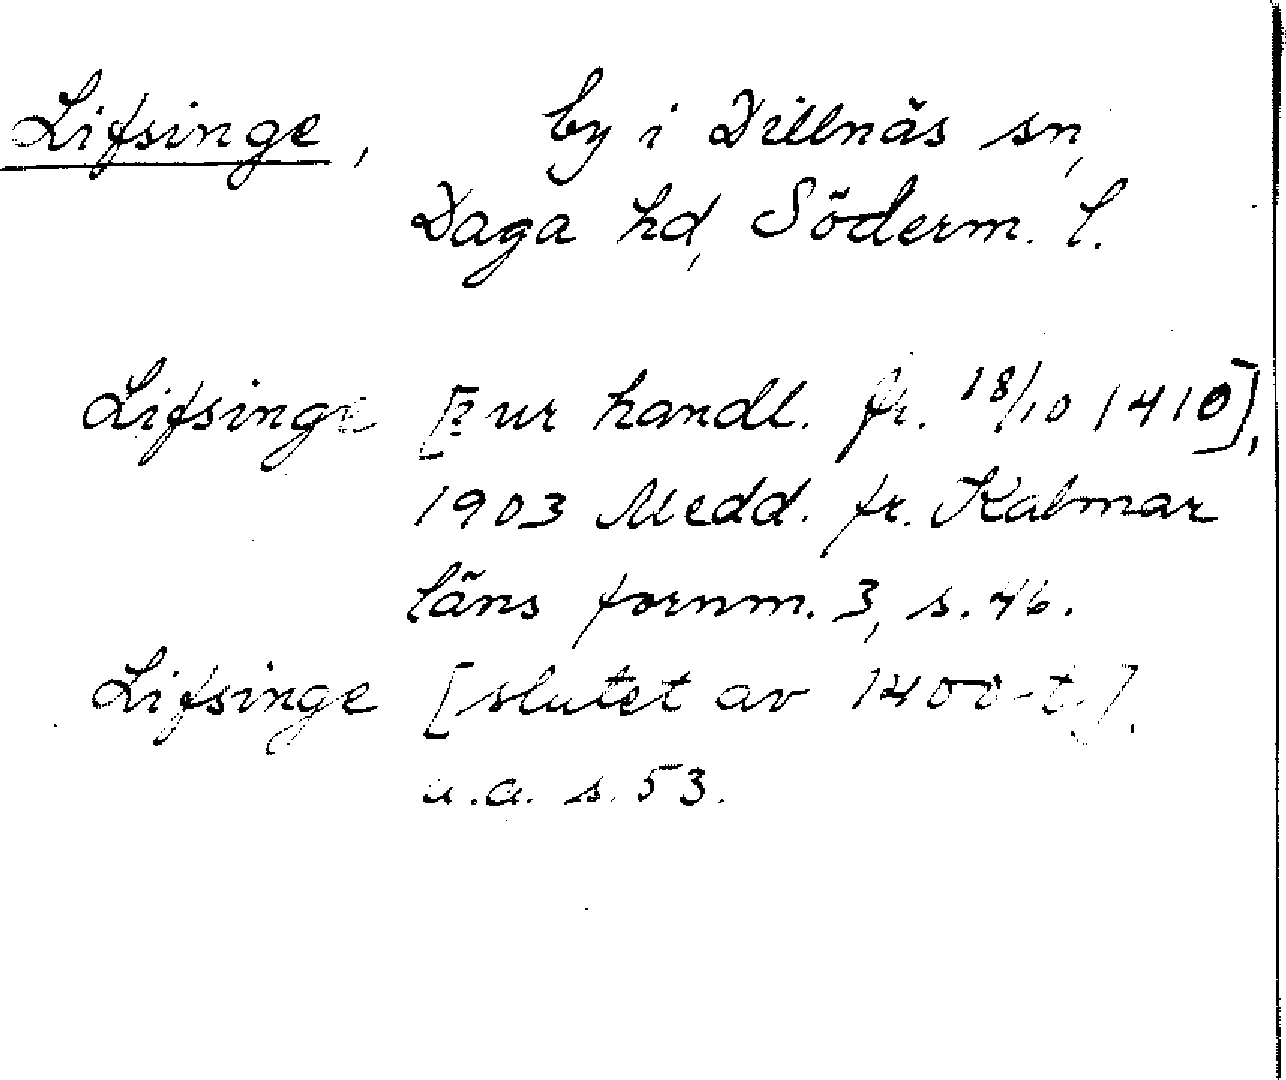 Lifsinge, by i Dillnäs sn,
Daga hd, Söderm. l.
Lifsinge [: ur handl. fr. 18/10 1410],
1903 Medd. fr. Kalmar
läns fornm. 3, s. 46.
Lifsinge [slutet av 1400-t.],
u.a. s. 53.